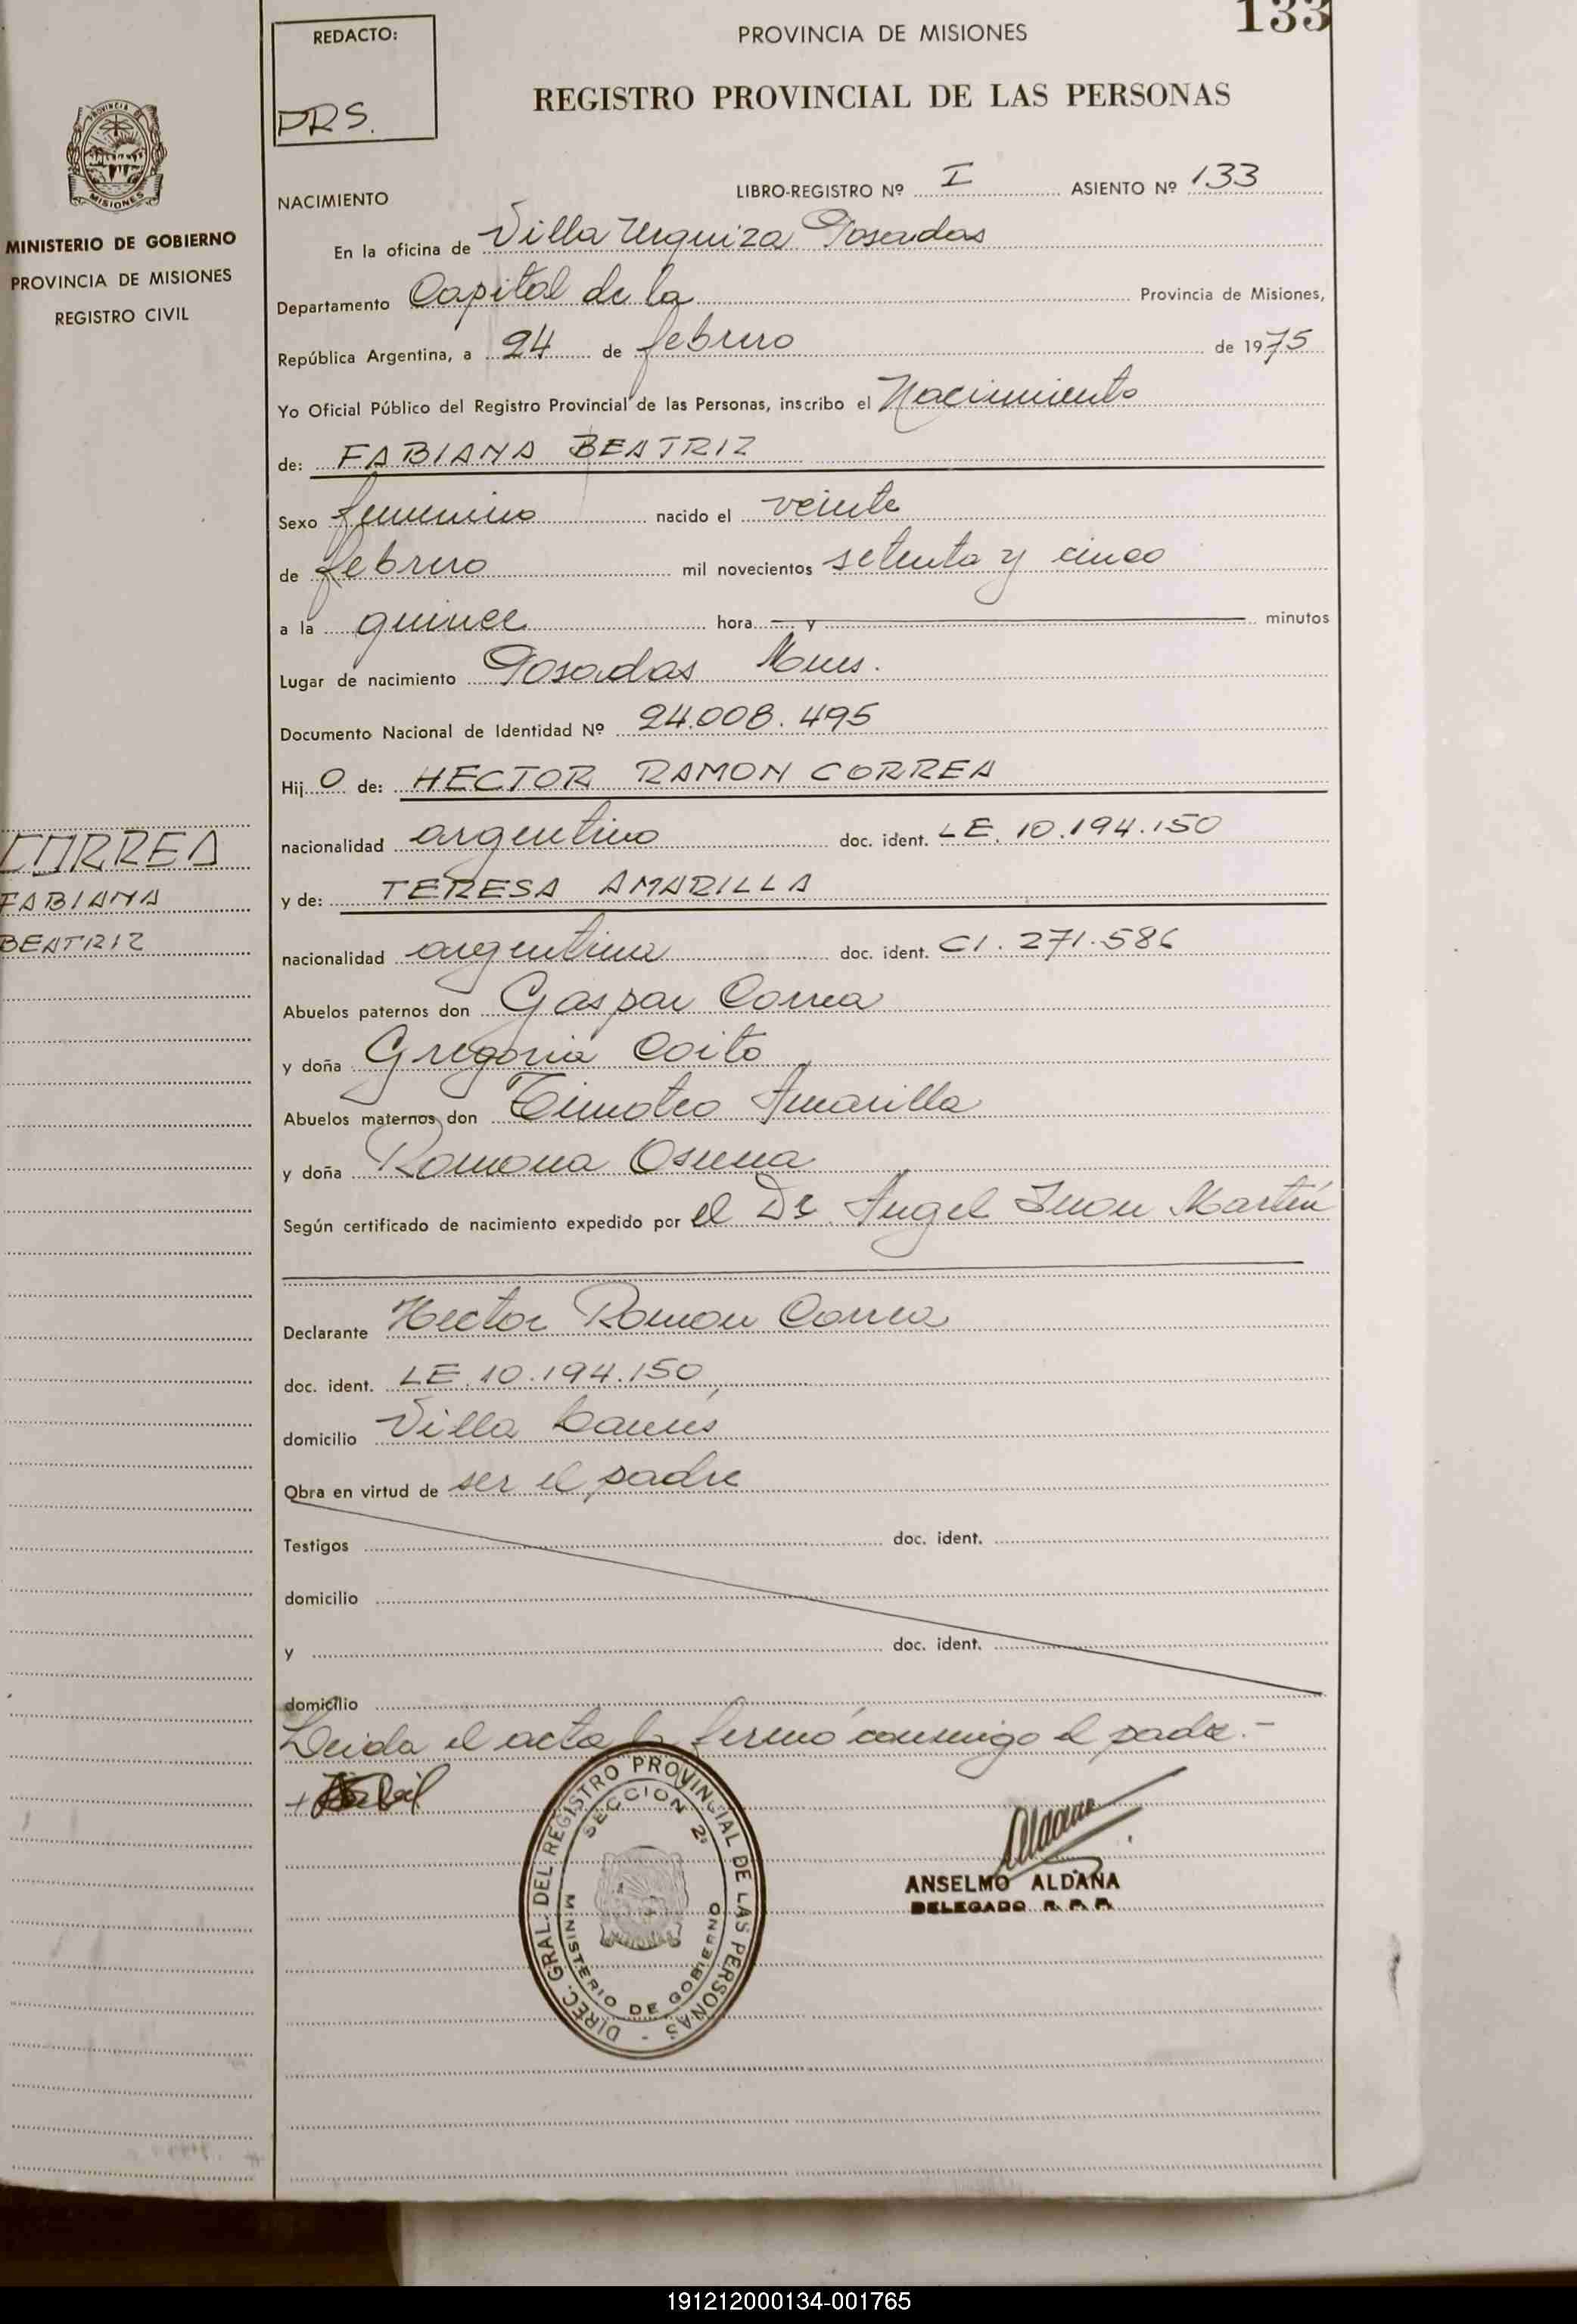 133
REDACTO:
PRS.
PROVINCIA DE MISIONES
REGISTRO PROVINCIAL DE LAS PERSONAS
PROVINCIA
MISIONES
MINISTERIO DE GOBIERNO
PROVINCIA DE MISIONES
REGISTRO CIVIL
CORREA
FABIANA
BEATRIZ
NACIMIENTO
LIBRO-REGISTRO Nº I ASIENTO Nº 133
En la oficina de Villa Urquiza Posadas
Departamento Capital de la Provincia de Misiones,
República Argentina, a 24 de febrero de 1975
Yo Oficial Público del Registro Provincial de las Personas, inscribo el Nacimiento
de: FABIANA BEATRIZ
Sexo femenino nacido el veinte
de febrero mil novecientos setenta y cinco
a la quince hora y minutos
Lugar de nacimiento Posadas Mnes.
Documento Nacional de Identidad Nº 24.008.495
Hij o de: HECTOR RAMON CORREA
nacionalidad argentino doc. ident. LE. 10.194.150
y de: TERESA AMARILLA
nacionalidad argentina doc. ident. CI. 271.586
Abuelos paternos don Gaspar Correa
y doña Gregoria Coito
Abuelos maternos don Timoteo Amarilla
y doña Ramona Osuna
Según certificado de nacimiento expedido por el Dr. Angel Juan Martín
Declarante Hector Ramon Correa
doc. ident. LE. 10.194.150
domicilio Villa Lanús
Obra en virtud de ser el padre
Testigos doc. ident.
domicilio
y doc. ident.
domicilio
Leida el acta la firmó conmigo el padre.-
DIREC. GRAL. DEL REGISTRO PROVINCIAL DE LAS PERSONAS -
SECCION 2ª
MINISTERIO DE GOBIERNO
ANSELMO ALDANA
DELEGADO R. P. P.
191212000134-001765